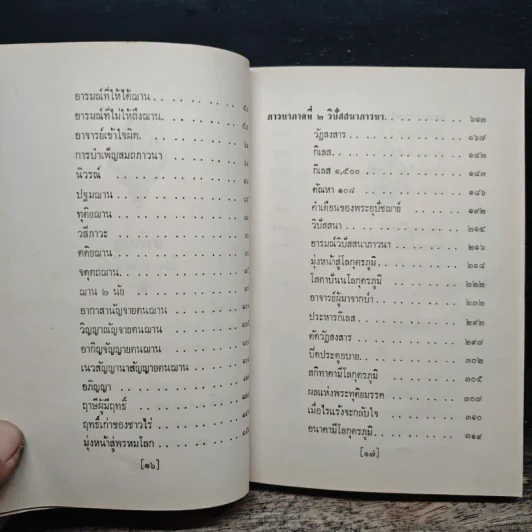 อารมณ์ที่ให้ได้ฌาน
อารมณ์ที่ไม่ให้ถึงฌาน
อาจารย์เข้าใจผิด
การบำเพ็ญสมถภาวนา
นิวรณ์
ปฐมฌาน
ทุติยฌาน
วสีภาวะ
ตติยฌาน
จตุตถฌาน
ฌาน ๒ นัย
อากาสานัญจายตนฌาน
วิญญาณัญจายตนฌาน
อากิญจัญญายตนฌาน
เนวสัญญานาสัญญายตนฌาน
อภิญญา
ฤาษีผู้มีฤทธิ์
ฤทธิ์เก่าของชาวไร่
มุ่งหน้าสู่พรหมโลก
[๑๖]
ภาวนาภาคที่ ๒ วิปัสสนาภาวนา
วัฏสงสาร ๑๖๗
กิเลส ๑๘๒
กิเลส ๑,๕๐๐ ๑๘๓
ตัณหา ๑๐๘ ๑๘๖
คำเตือนของพระอุปัชฌาย์ ๑๙๒
วิปัสสนา ๒๑๔
อารมณ์วิปัสสนาภาวนา ๒๑๖
มุ่งหน้าสู่โลกุตรภูมิ
โสดาบันนโลกุตรภูมิ ๒๒๒
อาจารย์ผู้มาจากป่า ๒๓๒
ประหารกิเลส ๒๙๒
ตัดวัฏสงสาร ๒๙๘
ปิดประตูอบาย ๓๐๒
สกิทาคามีโลกุตรภูมิ ๓๐๕
ผลแห่งพระทุติยมรรค ๓๐๗
เมื่อไรแร้งจะกลับใจ ๓๑๐
อนาคามีโลกุตรภูมิ ๓๑๔
[๑๗]